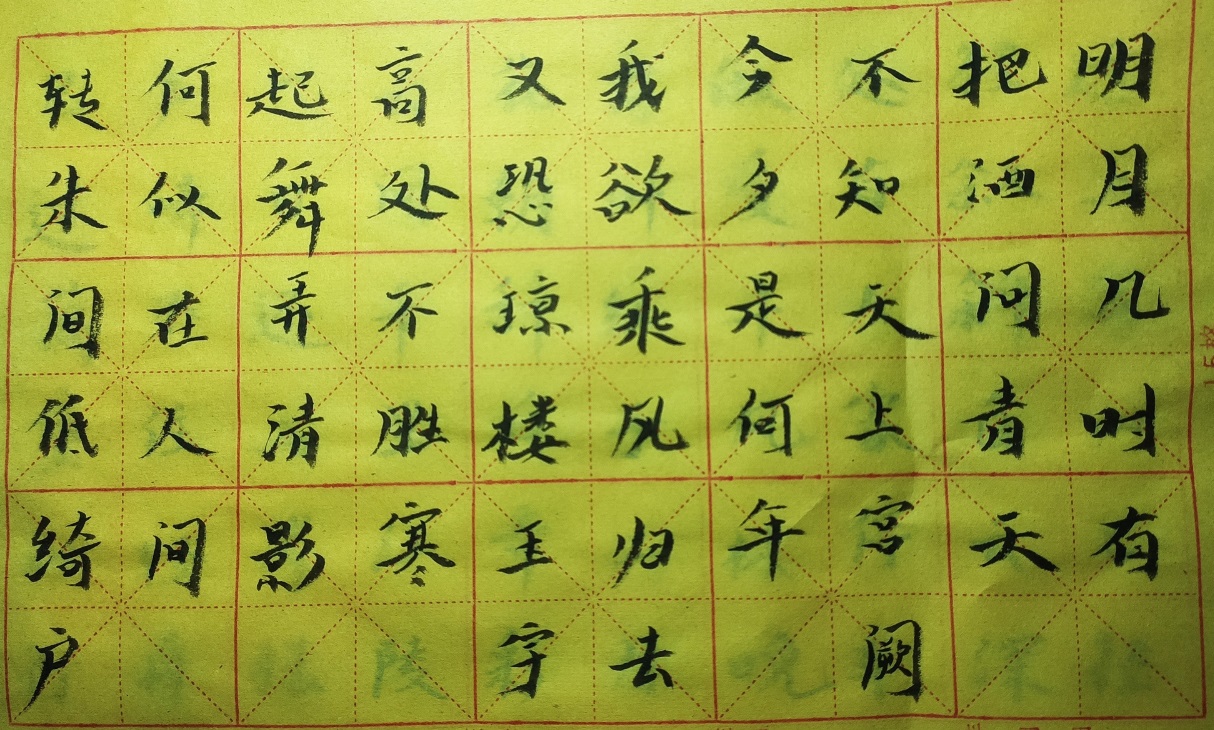 明月几时有
把酒问青天
不知天上宫阙
今夕是何年
我欲乘风归去
又恐琼楼玉宇
高处不胜寒
起舞弄清影
何似在人间
转朱间低绮户